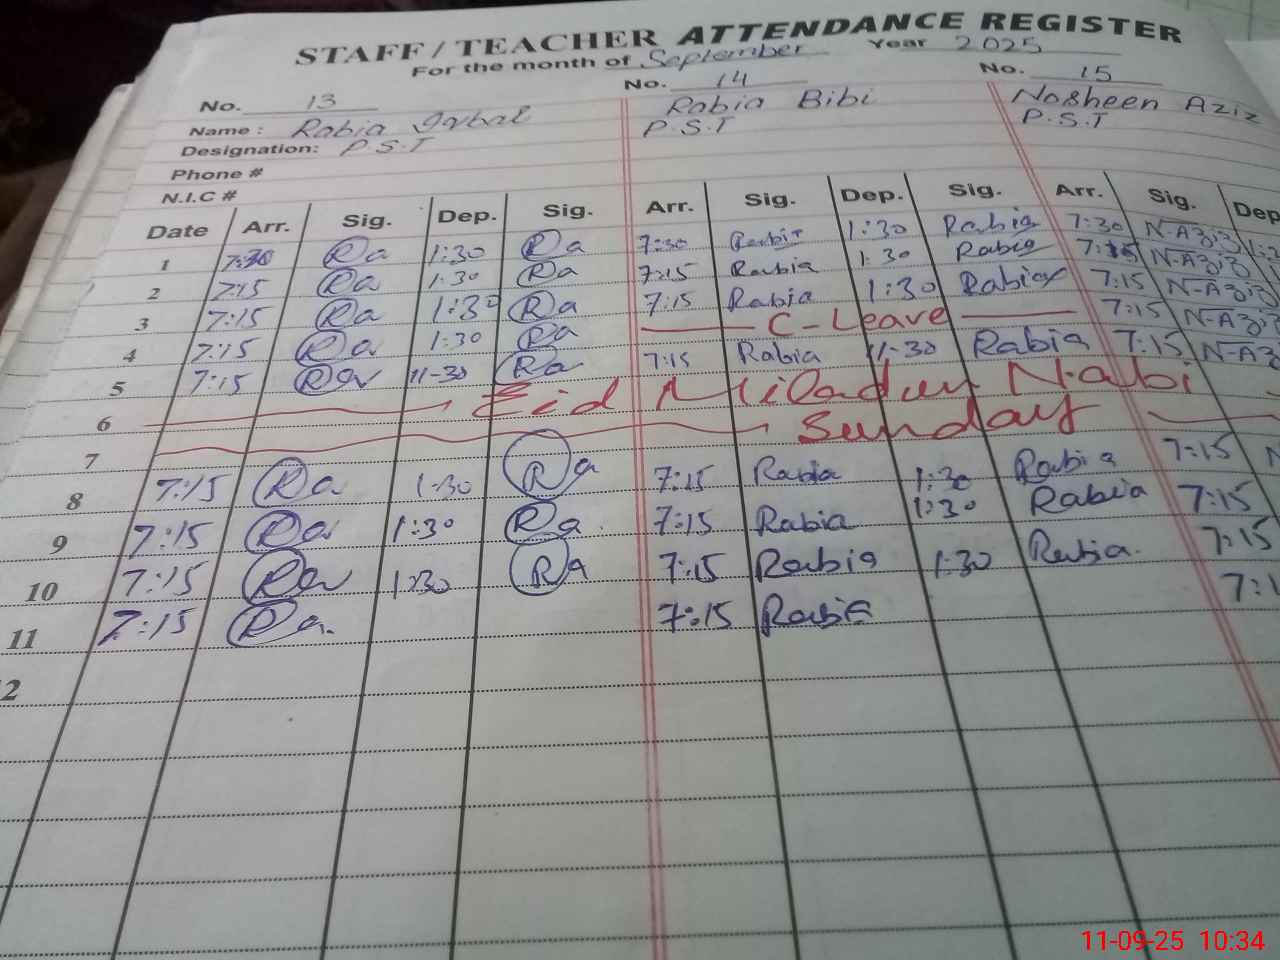 STAFF / TEACHER ATTENDANCE REGISTER
For the month of September Year 2025
No. 13 No. 14 No. 15
Name : Rabia Iqbal Rabia Bibi Nosheen Aziz
Designation: P.S.T P.S.T P.S.T
Phone #
N.I.C #
Date Arr. Sig. Dep. Sig. Arr. Sig. Dep. Sig. Arr. Sig. Dep
1 7:30 Ra 1:30 Ra 7:30 Rabia 1:30 Rabia 7:30 N-Aziz
2 7:15 Ra 1:30 Ra 7:15 Rabia 1:30 Rabia 7:15 N-Aziz
3 7:15 Ra 1:30 Ra 7:15 Rabia 1:30 Rabia 7:15 N-Aziz
4 7:15 Ra 1:30 Ra C-Leave 7:15 N-Aziz
5 7:15 Ra 11-30 Ra 7:15 Rabia 11-30 Rabia 7:15 N-Az
6 Eid Miladun Nabi
7 Sunday
8 7:15 Ra 1-30 Ra 7:15 Rabia 1:30 Rabia 7:15 N
9 7:15 Ra 1:30 Ra 7:15 Rabia 1:30 Rabia 7:15
10 7:15 Ra 1:30 Ra 7:15 Rabia 1:30 Rabia. 7:15
11 7:15 Ra. 7:15 Rabia 7:1
2
11-09-25 10:34